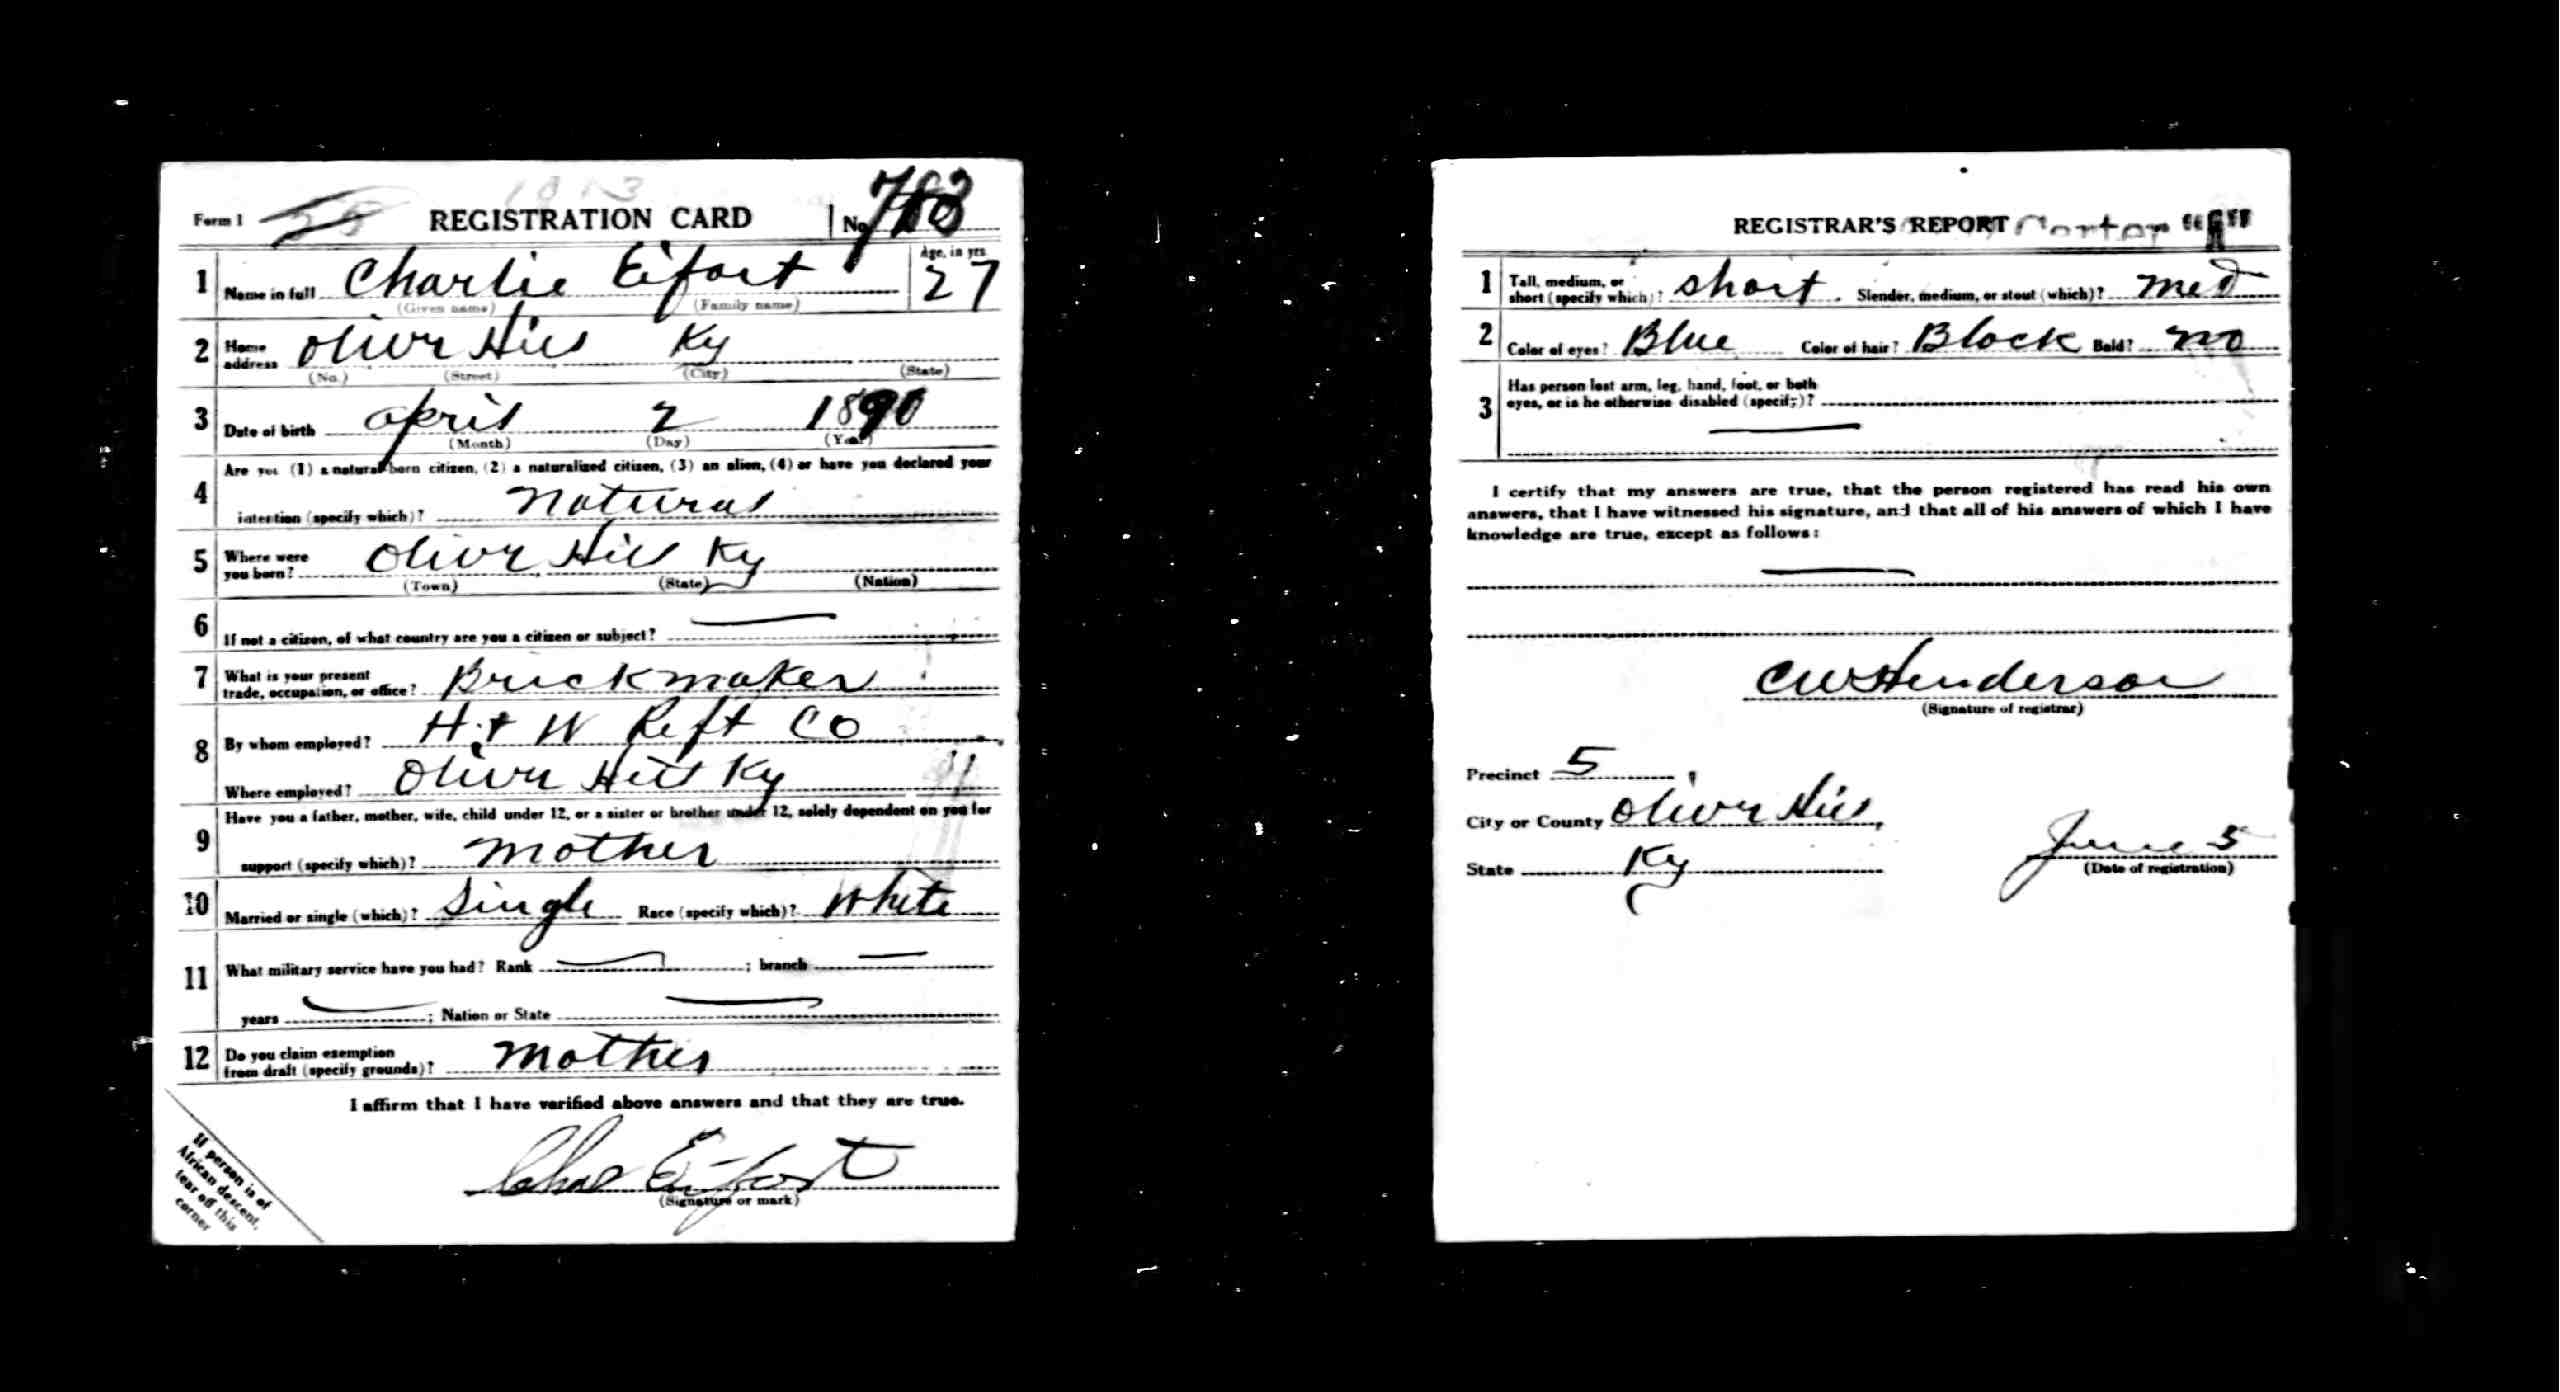 Form 1 REGISTRATION CARD No.
1 Name in full Charlie Eifort Age, in yrs 27
(Given name) (Family name)
2 Home address Olivr Hill Ky
(No.) (Street) (City) (State)
3 Date of birth april 2 1890
(Month) (Day) (Year)
4 Are you (1) a natural-born citizen, (2) a naturalized citizen, (3) an alien, (4) or have you declared your
intention (specify which)? Natural
5 Where were you born? Olivr Hill Ky
(Town) (State) (Nation)
6 If not a citizen, of what country are you a citizen or subject?
7 What is your present trade, occupation, or office? Brickmaker
8 By whom employed? H. & W Reft Co
Where employed? Olivr Hill Ky
9 Have you a father, mother, wife, child under 12, or a sister or brother under 12, solely dependent on you for
support (specify which)? Mother
10 Married or single (which)? Single Race (specify which)? White
11 What military service have you had? Rank ; branch
years ; Nation or State
12 Do you claim exemption from draft (specify grounds)? Mother
I affirm that I have verified above answers and that they are true.
Chas Eifort
(Signature or mark)
If person is of
African descent,
tear off this
corner
REGISTRAR'S REPORT Carter "A"
1 Tall, medium, or short (specify which)? Short. Slender, medium, or stout (which)? Med
2 Color of eyes? Blue Color of hair? Black Bald? No
3 Has person lost arm, leg, hand, foot, or both
eyes, or is he otherwise disabled (specify)?
I certify that my answers are true, that the person registered has read his own
answers, that I have witnessed his signature, and that all of his answers of which I have
knowledge are true, except as follows:
CW Henderson
(Signature of registrar)
Precinct 5
City or County Olivr Hill,
State Ky
June 5
(Date of registration)